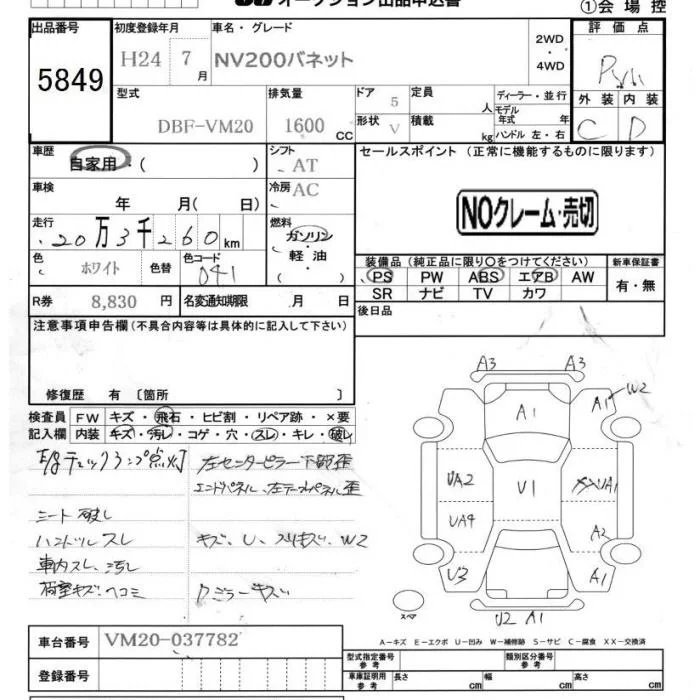 オークション出品申込書
①会場控
出品番号 初度登録年月 車名・グレード 2WD・4WD 評価点
5849 H24 7月 NV200バネット
型式 排気量 ドア 5 定員 人 ディーラー・並行 外装 内装
DBF-VM20 1600 CC 形状 V 積載 kg モデル年式 年 ハンドル 左・右 C D
車歴 自家用・( ) シフト AT セールスポイント (正常に機能するものに限ります)
車検 年 月( 日) 冷房 AC
NOクレーム・売切
走行 20万3千260km 燃料 ガソリン 軽・油 ( )
色 ホワイト 色替 色コード 041
装備品(純正品に限り○をつけてください) 新車保証書
PS PW ABS エアB AW 有・無
SR ナビ TV カワ
R券 8,830円 名変通知期限 月 日 後日品
注意事項申告欄(不具合内容等は具体的に記入して下さい)
修復歴 有〔箇所 〕
検査員 FW キズ・飛石・ヒビ割・リペア跡・×要
記入欄 内装 キズ・汚レ・コゲ・穴・スレ・キレ・破レ
A3 A3
A1 A1 W2
UA2 U1 UA1
UA4 A2
U3 A1
U2 A1
スペア
チェックランプ点灯 左センターピラー下部歪
エンドパネル、左テールパネル歪
シート破レ
ハンドルスレ キズ、U、スリキズ、W2
車内スレ、汚レ
荷室キズ・ヘコミ ミラーキズ
A−キズ E−エクボ U−凹み W−補修跡 S−サビ C−腐食 XX−交換済
車台番号 VM20-037782
型式指定番号 参考 類別区分番号 参考
登録番号 車庫証明用 参考 長さ cm 幅 cm 高さ cm